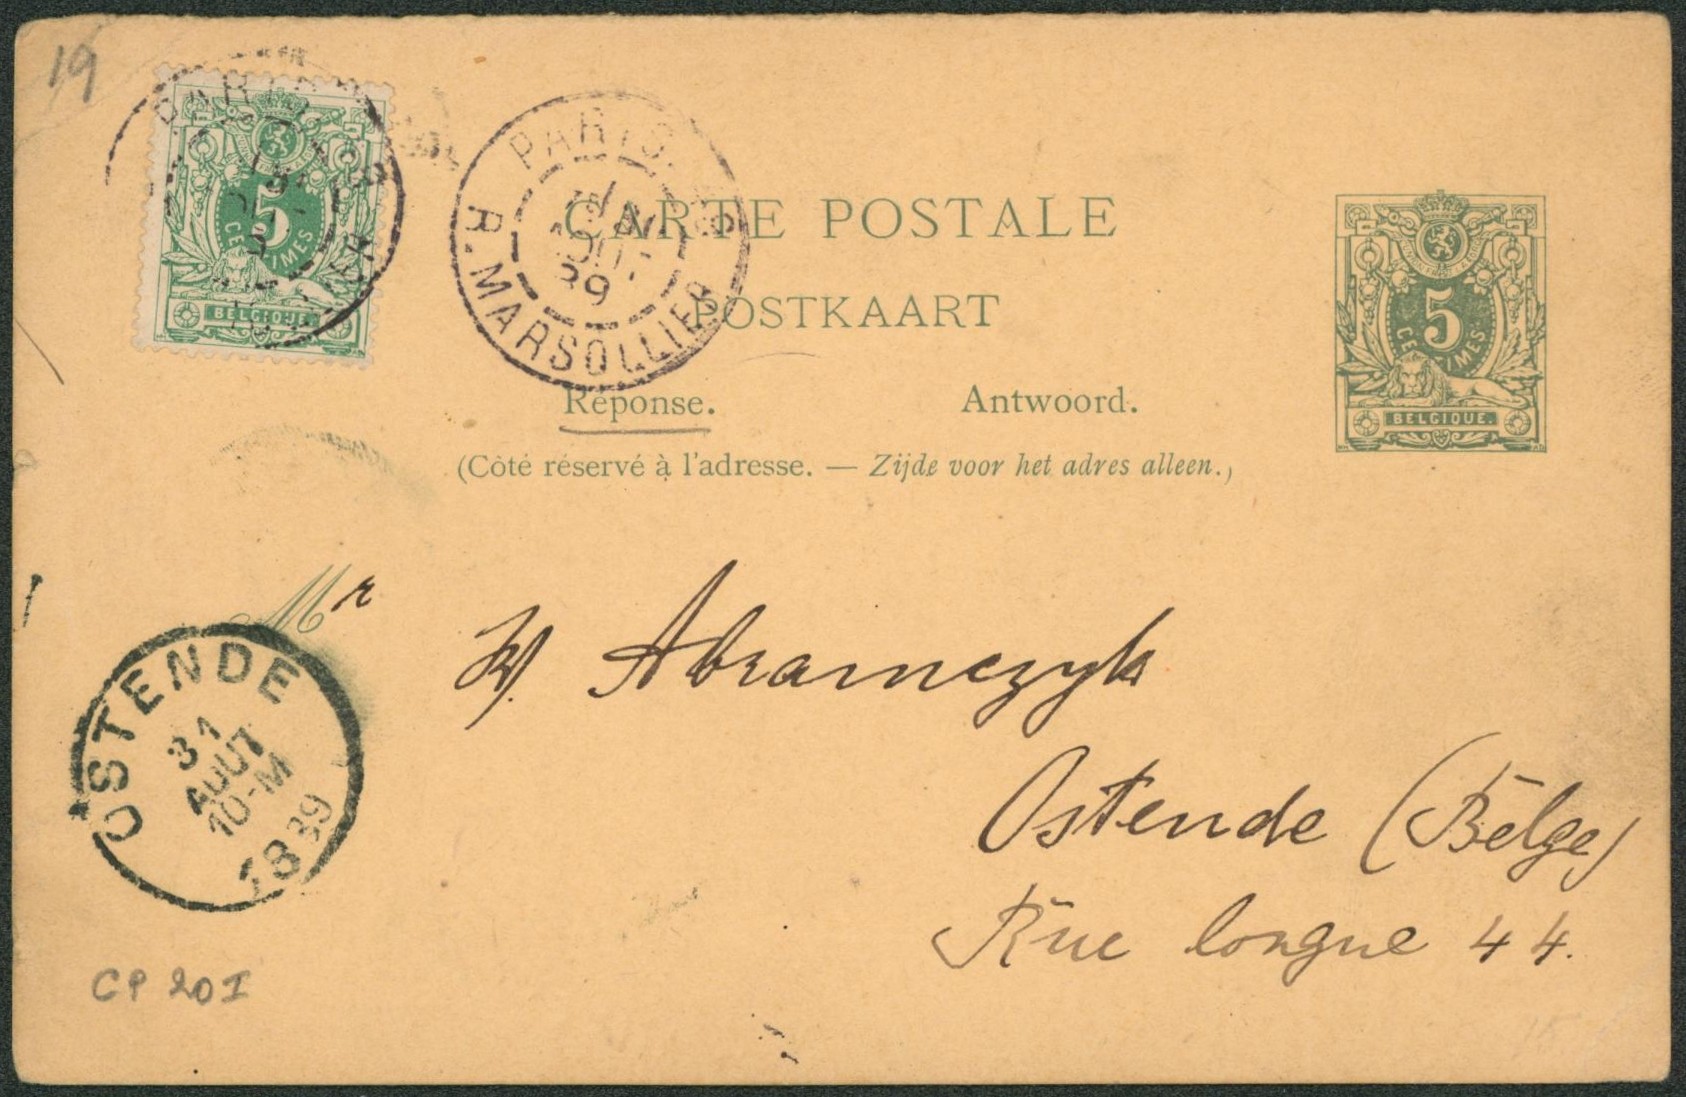 19
PARIS
5
CENTIMES
BELGIQUE
PARIS
AOUT
89
R. MARSOLLIER
CARTE POSTALE
POSTKAART
Réponse. Antwoord.
(Côté réservé à l'adresse. — Zijde voor het adres alleen.)
5
CENTIMES
BELGIQUE
Mr W. Abramczyk
Ostende (Belge)
Rue longue 44.
OSTENDE
31
AOUT
10-M
1889
CP 20I